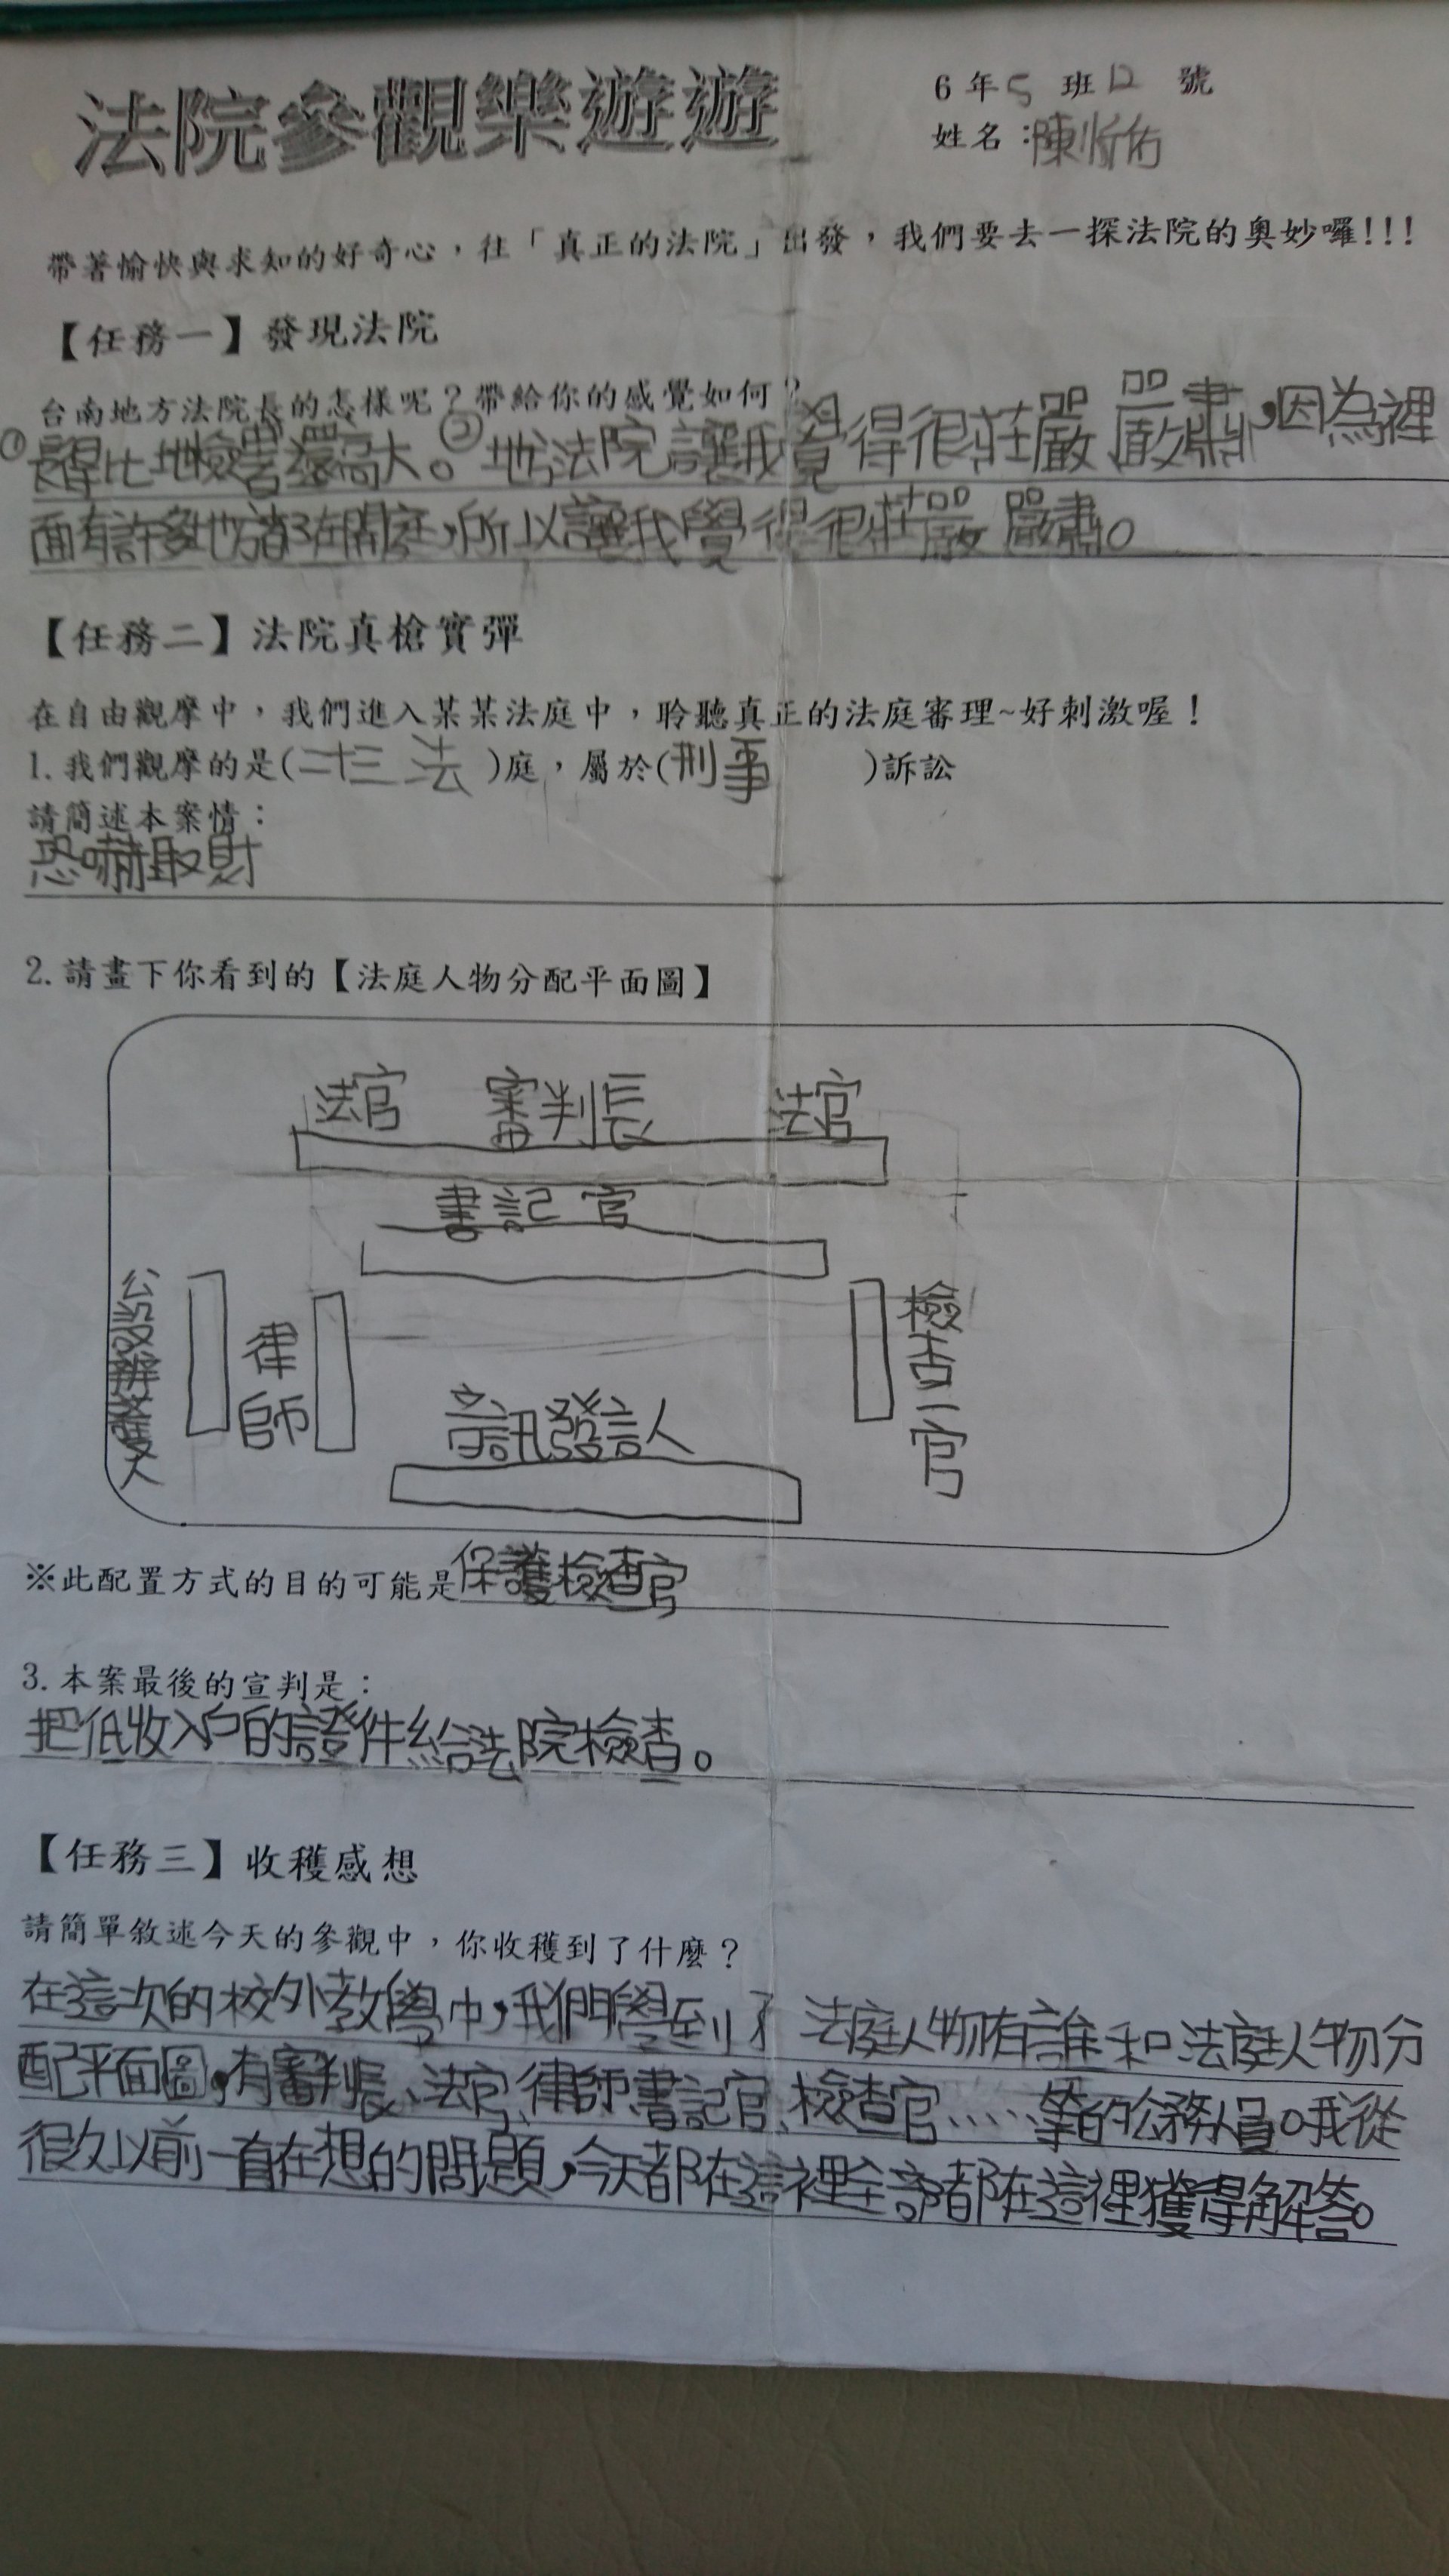 法院參觀樂遊遊
6年5班12號
姓名：陳忻佑
帶著愉快與求知的好奇心，往「真正的法院」出發，我們要去一探法院的奧妙囉!!!
【任務一】發現法院
台南地方法院長的怎樣呢？帶給你的感覺如何？
①長得比地檢署還高大。②地方法院讓我覺得很莊嚴、嚴肅，因為裡
面有許多地方都在開庭，所以讓我覺得很莊嚴、嚴肅。
【任務二】法院真槍實彈
在自由觀摩中，我們進入某某法庭中，聆聽真正的法庭審理~好刺激喔！
1.我們觀摩的是(二十三法)庭，屬於(刑事)訴訟
請簡述本案情：
恐嚇取財
2.請畫下你看到的【法庭人物分配平面圖】
法官 審判長 法官
書記官
公設辯護人
律師
檢查官
音訊發言人
※此配置方式的目的可能是保護檢查官
3.本案最後的宣判是：
把低收入戶的證件給法院檢查。
【任務三】收穫感想
請簡單敘述今天的參觀中，你收穫到了什麼？
在這次的校外教學中，我們學到了法庭人物有誰和法庭人物分
配平面圖，有審判長、法官、律師、書記官、檢查官……等的公務人員。我從
很久以前一直在想的問題，今天都在這裡全部都在這裡獲得解答。